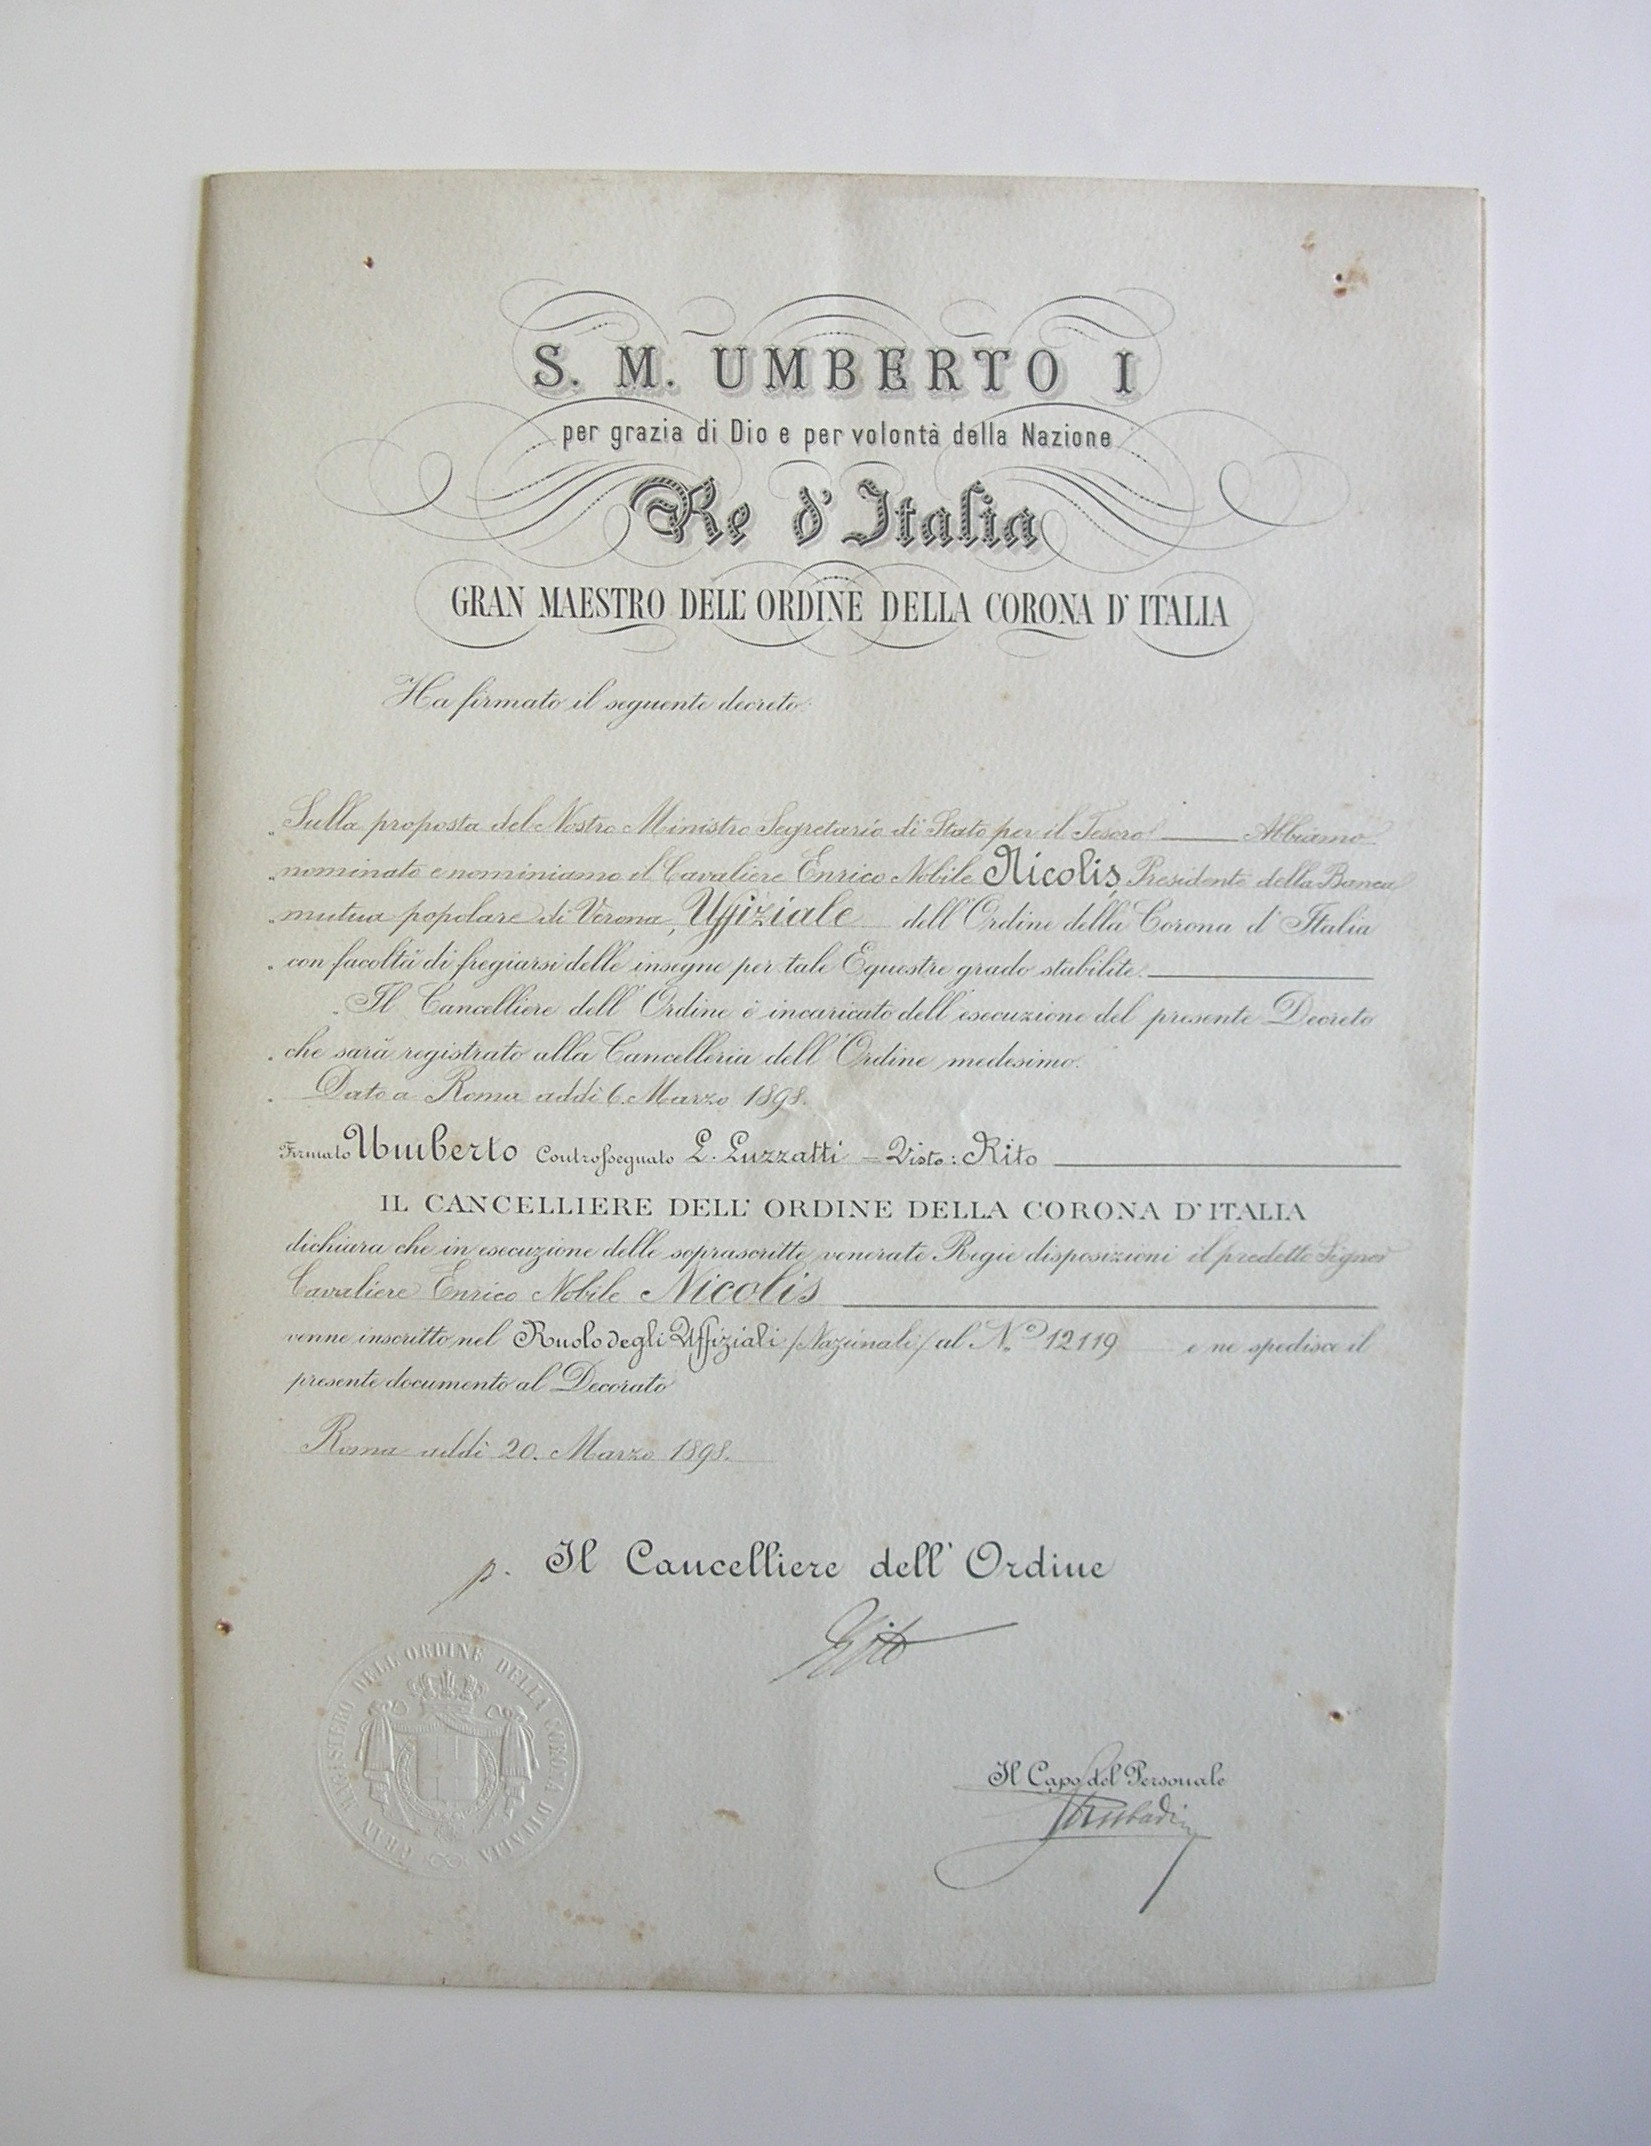 S. M. UMBERTO I
per grazia di Dio e per volontà della Nazione
Re d'Italia
GRAN MAESTRO DELL'ORDINE DELLA CORONA D'ITALIA
Ha firmato il seguente decreto:
„ Sulla proposta del Nostro Ministro Segretario di Stato per il Tesoro Abbiamo
„ nominato e nominiamo il Cavaliere Enrico Nobile Nicolis, Presidente della Banca
„ mutua popolare di Verona, Uffiziale dell'Ordine della Corona d'Italia
„ con facoltà di fregiarsi delle insegne per tale Equestre grado stabilite.
„ Il Cancelliere dell'Ordine è incaricato dell'esecuzione del presente Decreto
„ che sarà registrato alla Cancelleria dell'Ordine medesimo.
„ Dato a Roma addì 6. Marzo 1898.
Firmato Umberto Controssegnato L. Luzzatti = Visto: Rito
IL CANCELLIERE DELL'ORDINE DELLA CORONA D'ITALIA
dichiara che in esecuzione delle soprascritte venerate Regie disposizioni il predetto Signor
Cavaliere Enrico Nobile Nicolis
venne inscritto nel Ruolo degli Uffiziali /Nazionali/ al N.º 12119 e ne spedisce il
presente documento al Decorato
Roma addì 20. Marzo 1898.
p. Il Cancelliere dell'Ordine
Rito
GRAN MAGISTERO DELL'ORDINE DELLA CORONA D'ITALIA
Il Capo del Personale